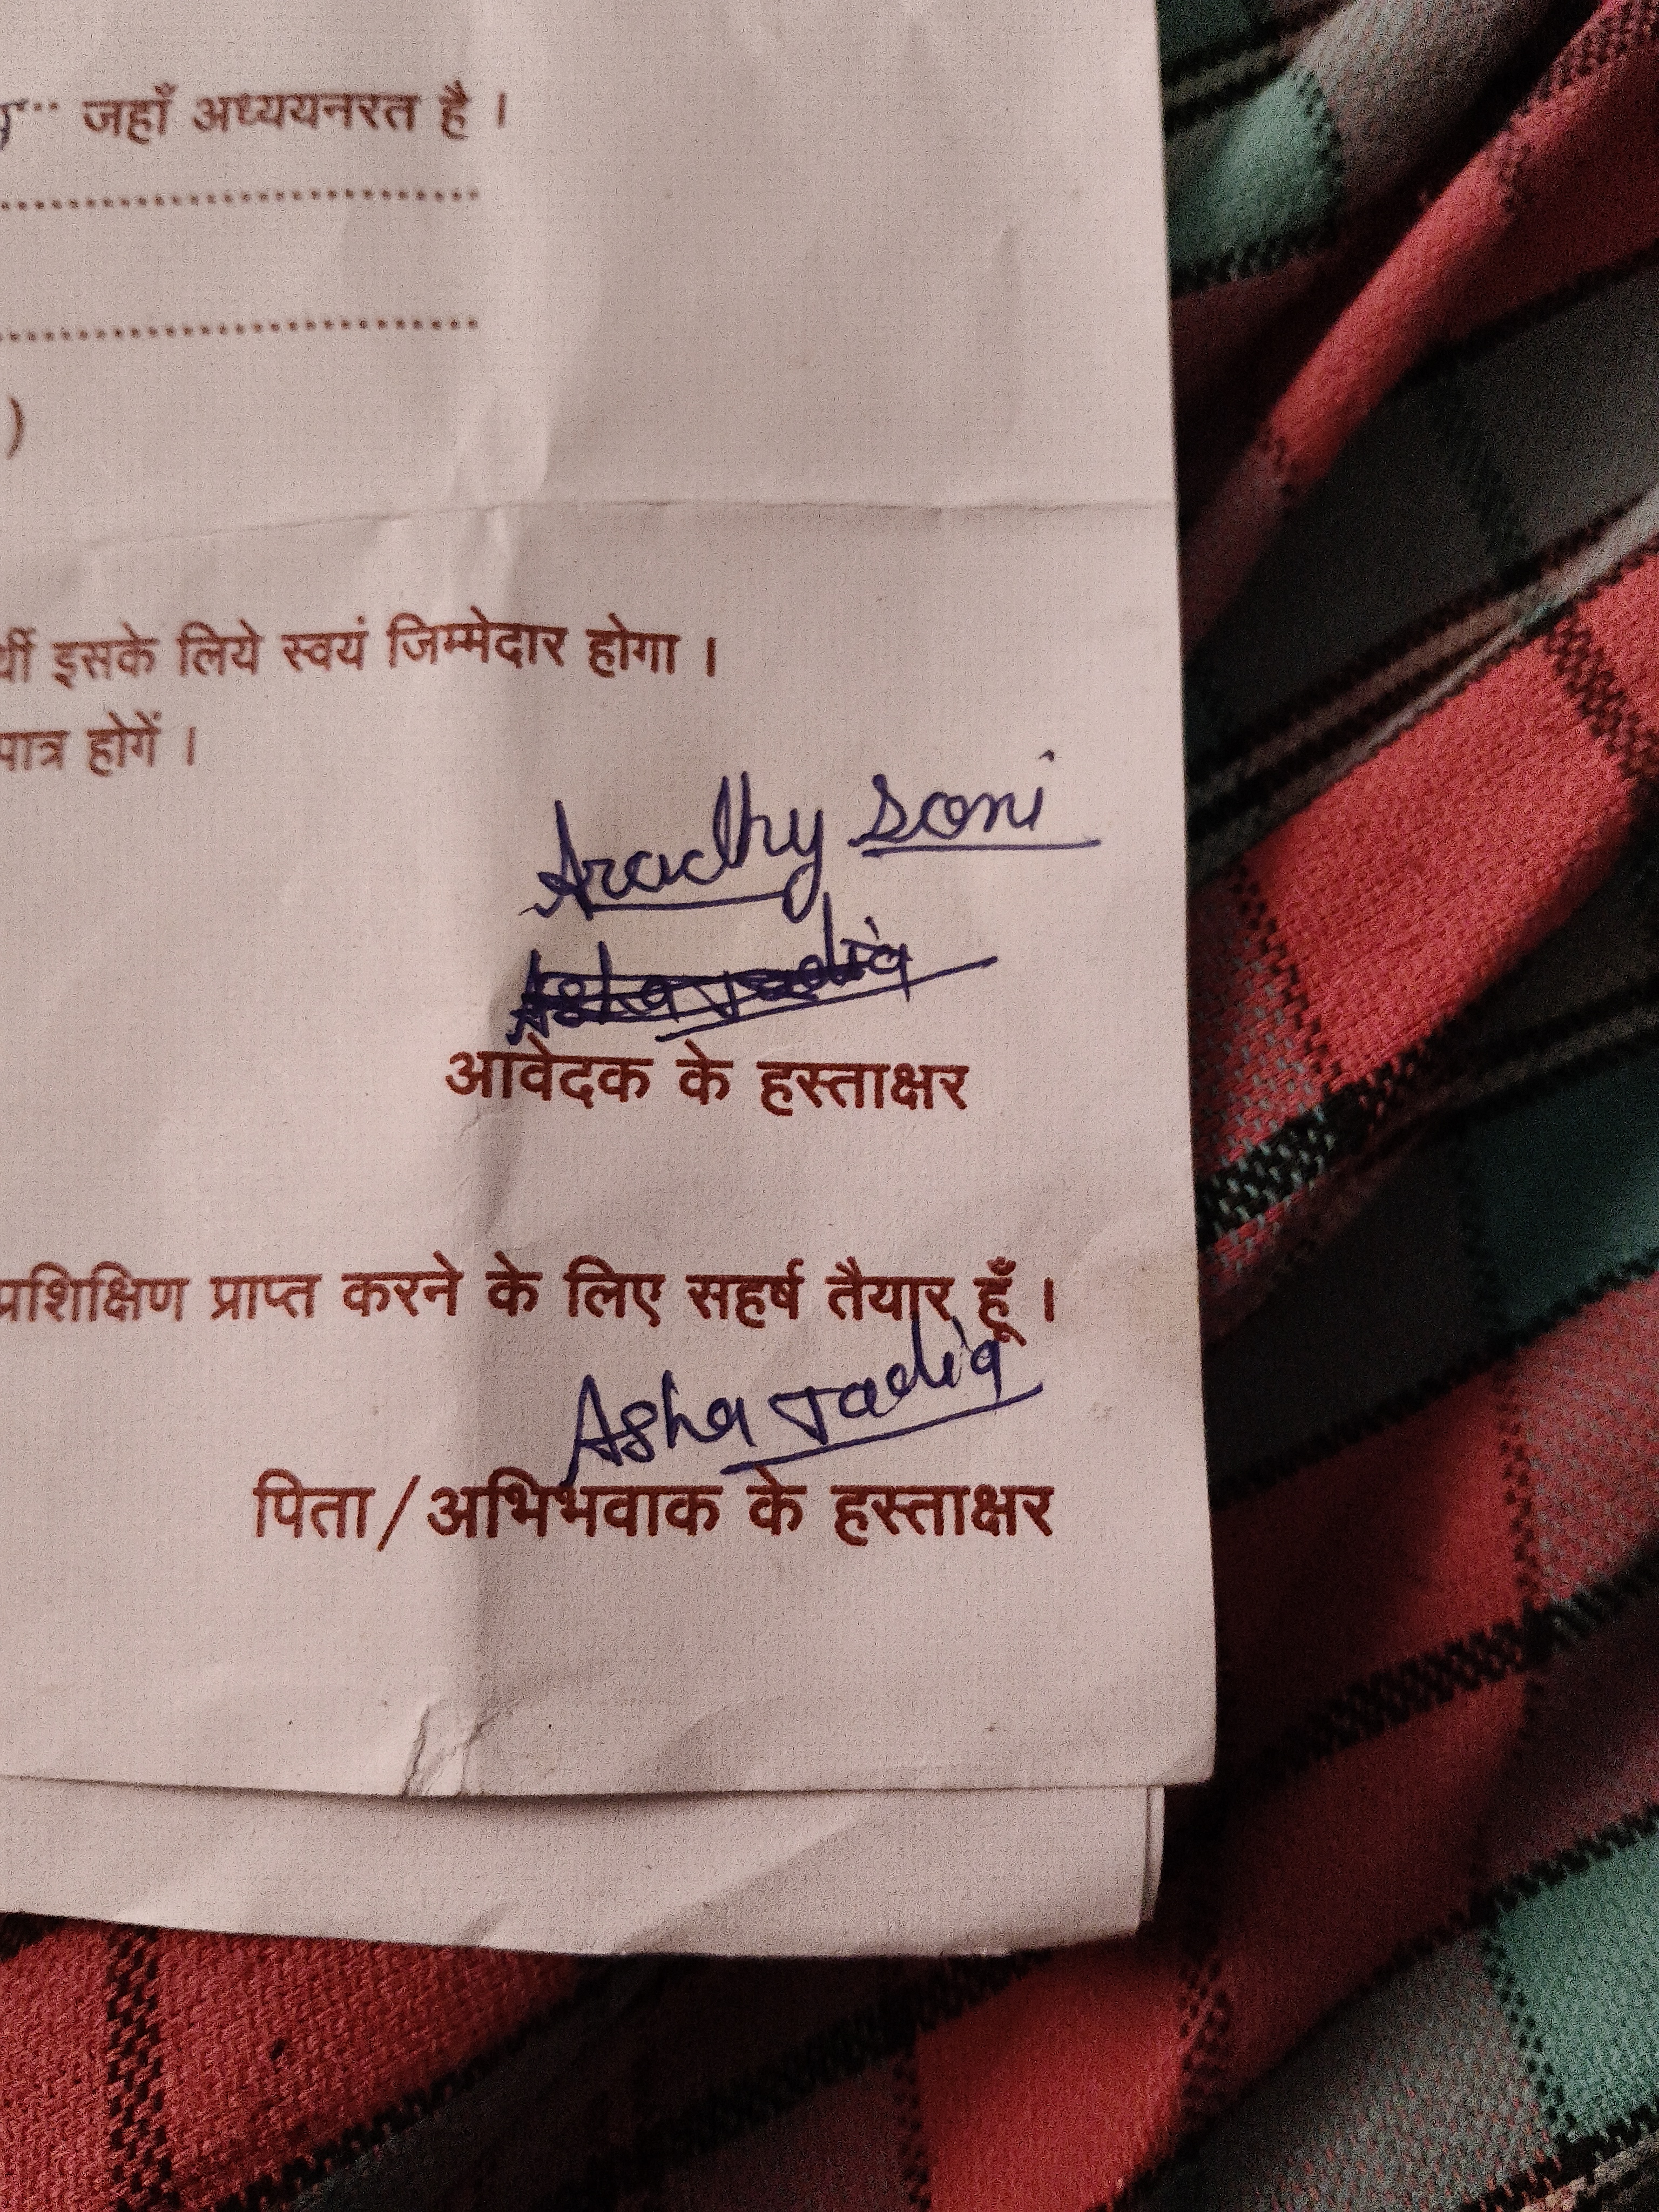 जहाँ अध्ययनरत है ।
)
र्थी इसके लिये स्वयं जिम्मेदार होगा ।
पात्र होगें ।
Aradhy Soni
आवेदक के हस्ताक्षर
प्रशिक्षिण प्राप्त करने के लिए सहर्ष तैयार हूँ ।
Asha Jadia
पिता/अभिभवाक के हस्ताक्षर